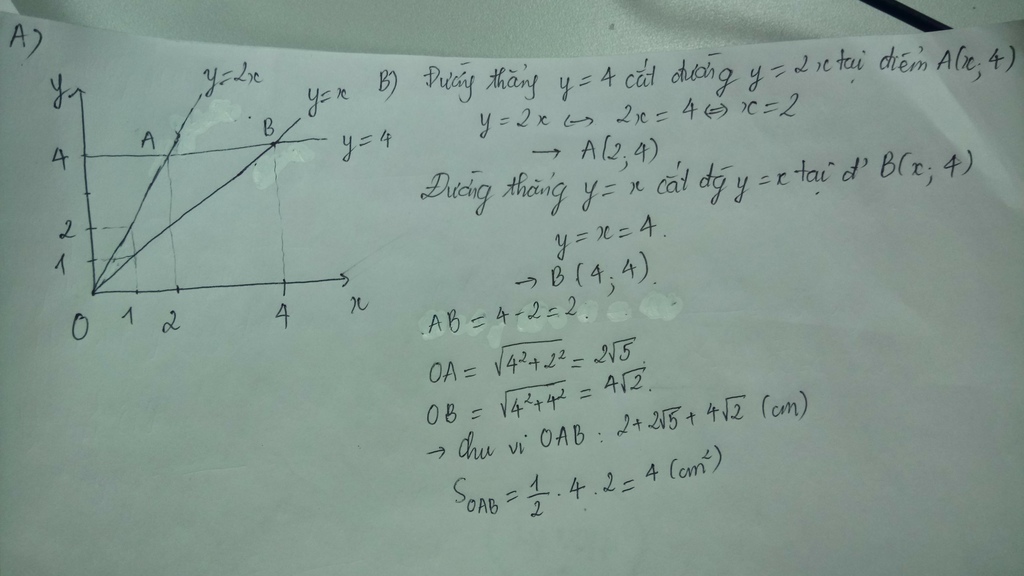 A)
y
y=2x
y=x
y=4
A
B
4
2
1
0
1
2
4
x
B) Đường thẳng y = 4 cắt đường y = 2x tại điểm A(x; 4)
y = 2x ↔ 2x = 4 ⇔ x = 2
→ A(2; 4)
Đường thẳng y = x cắt đg̃ y = x tại đ' B(x; 4)
y = x = 4.
→ B(4; 4).
AB = 4 - 2 = 2.
OA = √(4² + 2²) = 2√5.
OB = √(4² + 4²) = 4√2.
→ Chu vi OAB : 2 + 2√5 + 4√2 (cm)
S_OAB = 1/2 . 4 . 2 = 4 (cm²)